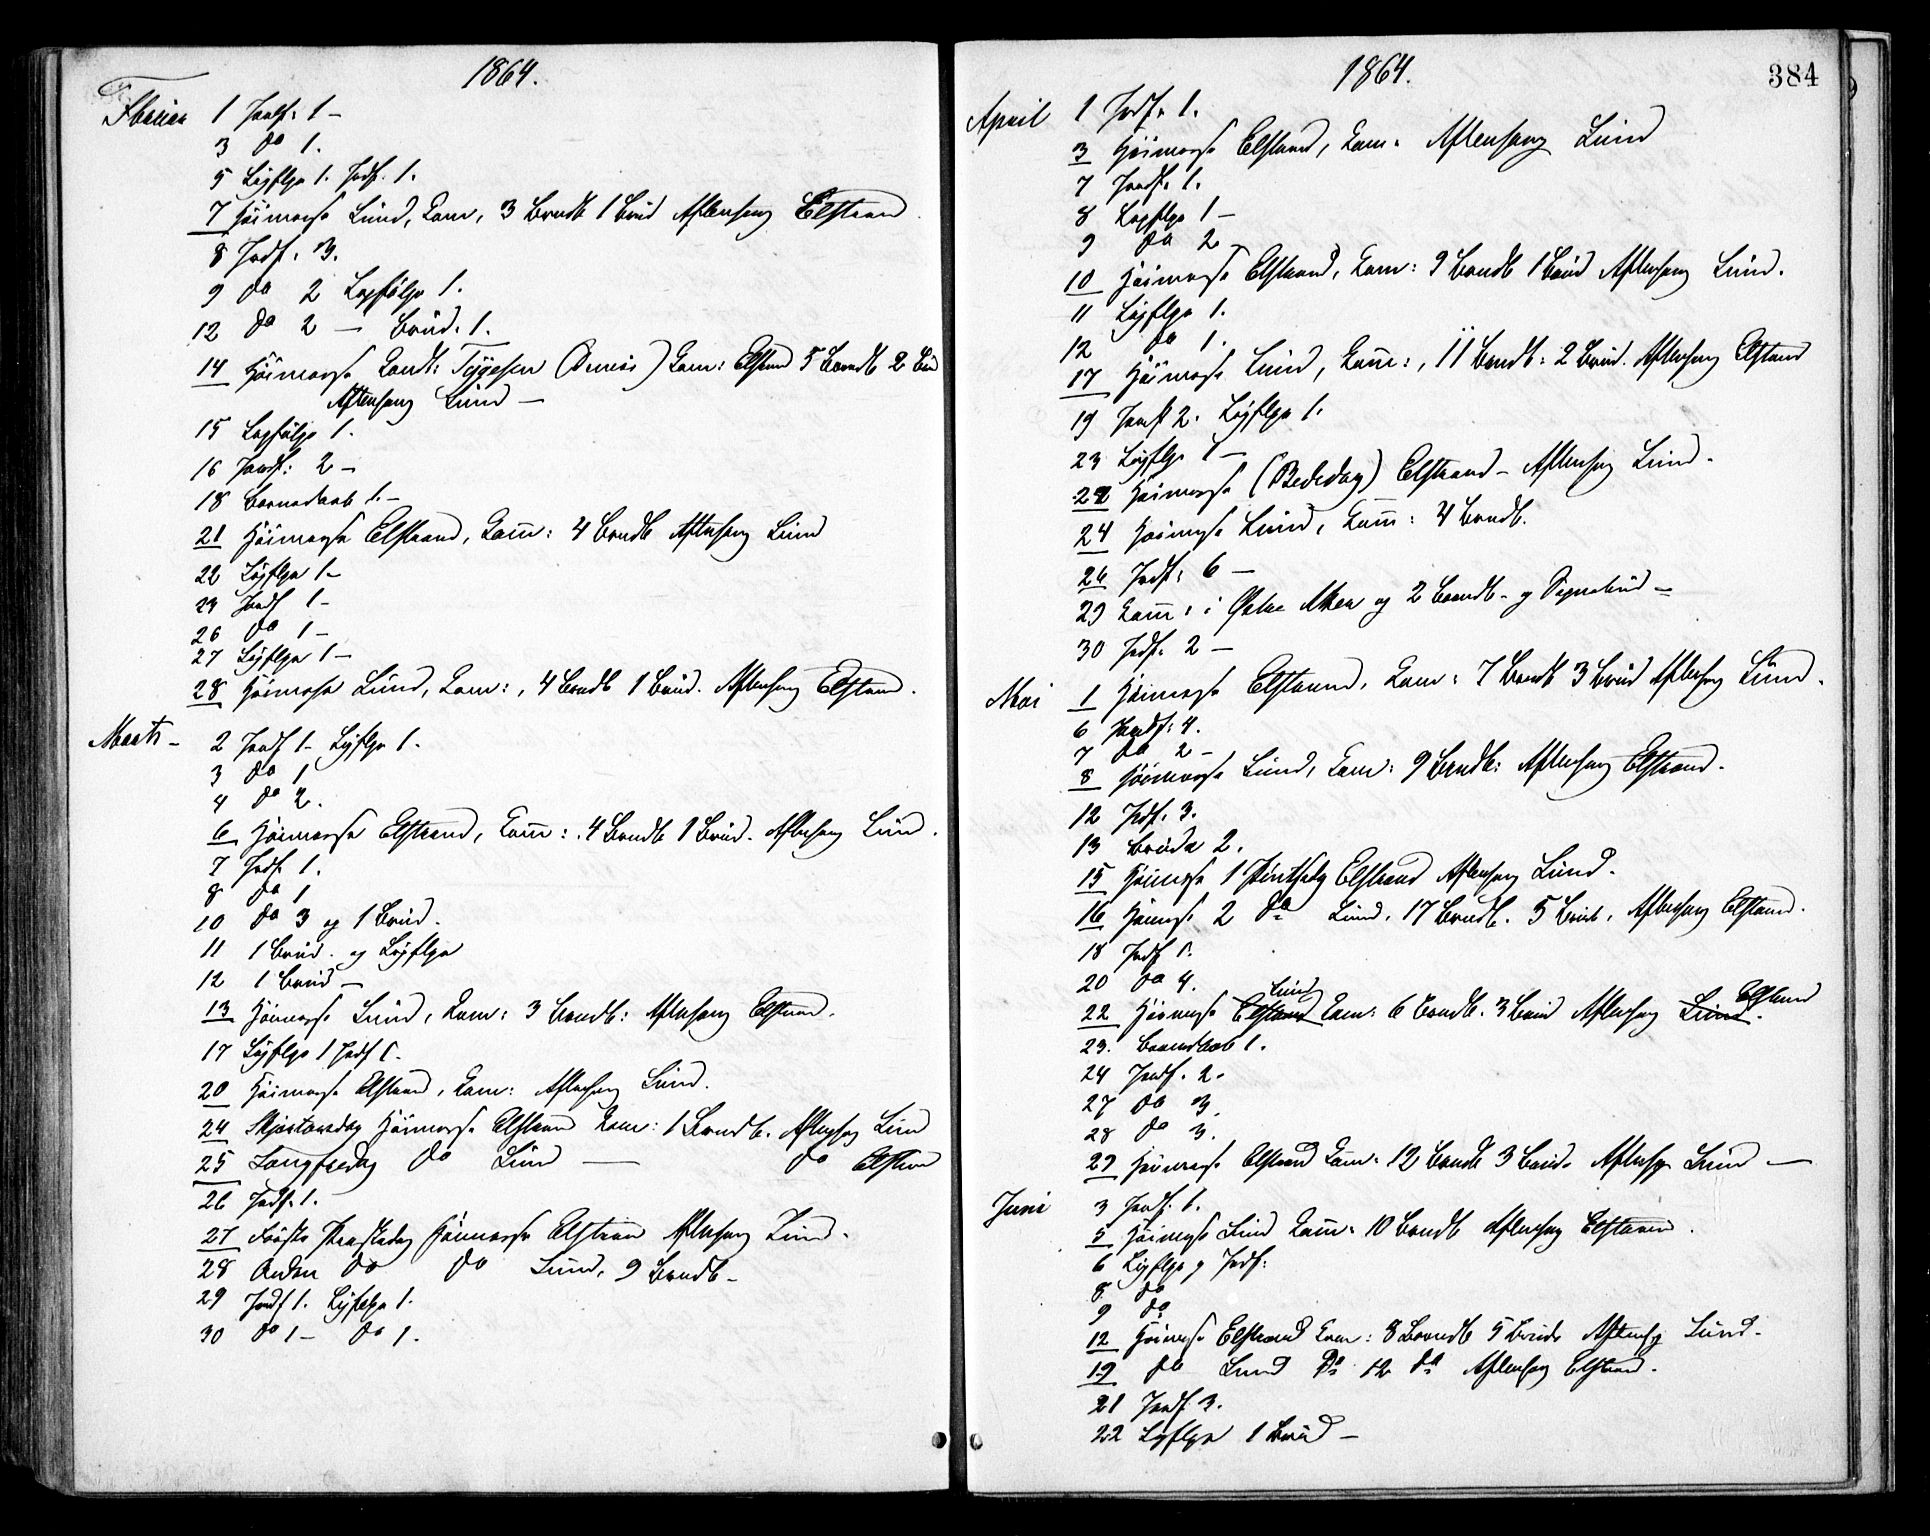 1864.
Februar 1 Jordf. 1 –
3 do 1.
5 Ligflge 1. Jrdf. 1.
7 Høimesse Lund, Com, 3 Barndb 1 Brud Aftensang Elstrand.
8 Jrdf. 3.
9 do 2 Ligfølge 1.
12 do 2 – Brud. 1.
14 Høimesse Cand: Tygesen Com: Elstrand 5 Barndb 2 Brud
Aftensang Lund –
15 Ligfølge 1.
16 Jordf: 2 –
18 Barnedaab 1. –
21 Høimesse Elstrand, Com: 4 Brndb Aftensang Lund
22 Ligflge 1 –
23 Jordf 1 –
26 do 1 –
27 Ligflge 1 –
28 Høimesse Lund, Com:, 4 Brndb 1 Brud. Aftensang Elstrand.
Marts – 2 Jordf 1 – Ligflge 1.
3 do 1
4 do 2.
6 Høimesse Elstrand, Com: 4 Brndb 1 Brud. Aftensang Lund.
7 Jrdf. 1.
8 do 1
10 do 3 og 1 Brud.
11 1 Brud. og Ligflge
12 1 Brud –
13 Høimesse Lund, Com: 3 Brndb: Aftensang Elstrand.
17 Ligflge 1 Jrdf 1.
20 Høimesse Elstrand, Com: Aftensang Lund.
24 Skjærtorsdag Høimesse Elstrand Com: 1 Brndb. Aftensang Lund
25 Langfredag do Lund – do Elstrand
26 Jrdf. 1.
27 Første Paaskedag Høimesse Elstrand Aftensang Lund.
28 Anden do do Lund, 9 Brndb –
29 Jrdf 1. Ligflge 1.
30 do 1 – do 1.
1864.
384
April 1 Jrdf. 1.
3 Høimesse Elstrand, Com. Aftensang Lund
7 Jordf. 1.
8 Ligflge 1 –
9 do 2
10 Høimesse Elstrand, Com: 9 Brndb 1 Brud Aftensang Lund.
11 Ligflge 1.
12 do 1.
17 Høimesse Lund, Com:, 11 Brndb: 2 Brud. Aftensang Elstrand
19 Jordf 2. Ligflge 1.
23 Ligflge 1 –
22 Høimesse (Bededag) Elstrand – Aftensang Lund.
24 Høimesse Lund, Com: 4 Brndb.
26 Jrdf: 6 –
29 Com: i Østre Aker og 2 Brndb. og Sognebud –
30 Jrdf. 2 –
Mai 1 Høimesse Elstrand, Com: 7 Brndb 3 Brud Aftensang Lund.
6 Jordf: 4.
7 do 2 –
8 Høimesse Lund, Com: 9 Brndb: Aftensang Elstrand.
12 Jrdf. 3.
13 Brude 2.
15 Høimesse 1 Pintsedg Elstrand Aftensang Lund.
16 Høimesse 2 do Lund, 17 Brndb. 5 Brud. Aftensang Elstrand.
18 Jrdf 1.
20 do 4.
Lund Elstrand
22 Høimesse Elstrand Com: 6 Brndb. 3 Brud Aftensang Lund.
23. Barnedaab 1.
24 Jordf. 2.
27 do 3.
28 do 3.
29 Høimesse Elstrand Com. 12 Brndb 3 Brud. Aftensg Lund –
Juni 3 Jordf. 1.
5 Høimesse Lund Com. 10 Brndb Aftensang Elstrand.
6 Ligflge og Jrdf:
8 do
9 do
12 Høimesse Elstrand Com: 8 Brndb 5 Brude Aftensg Lund.
19 do Lund do 12 do Aftensang Elstrand.
21 Jordf 3.
22 Ligflge 1 Brud –